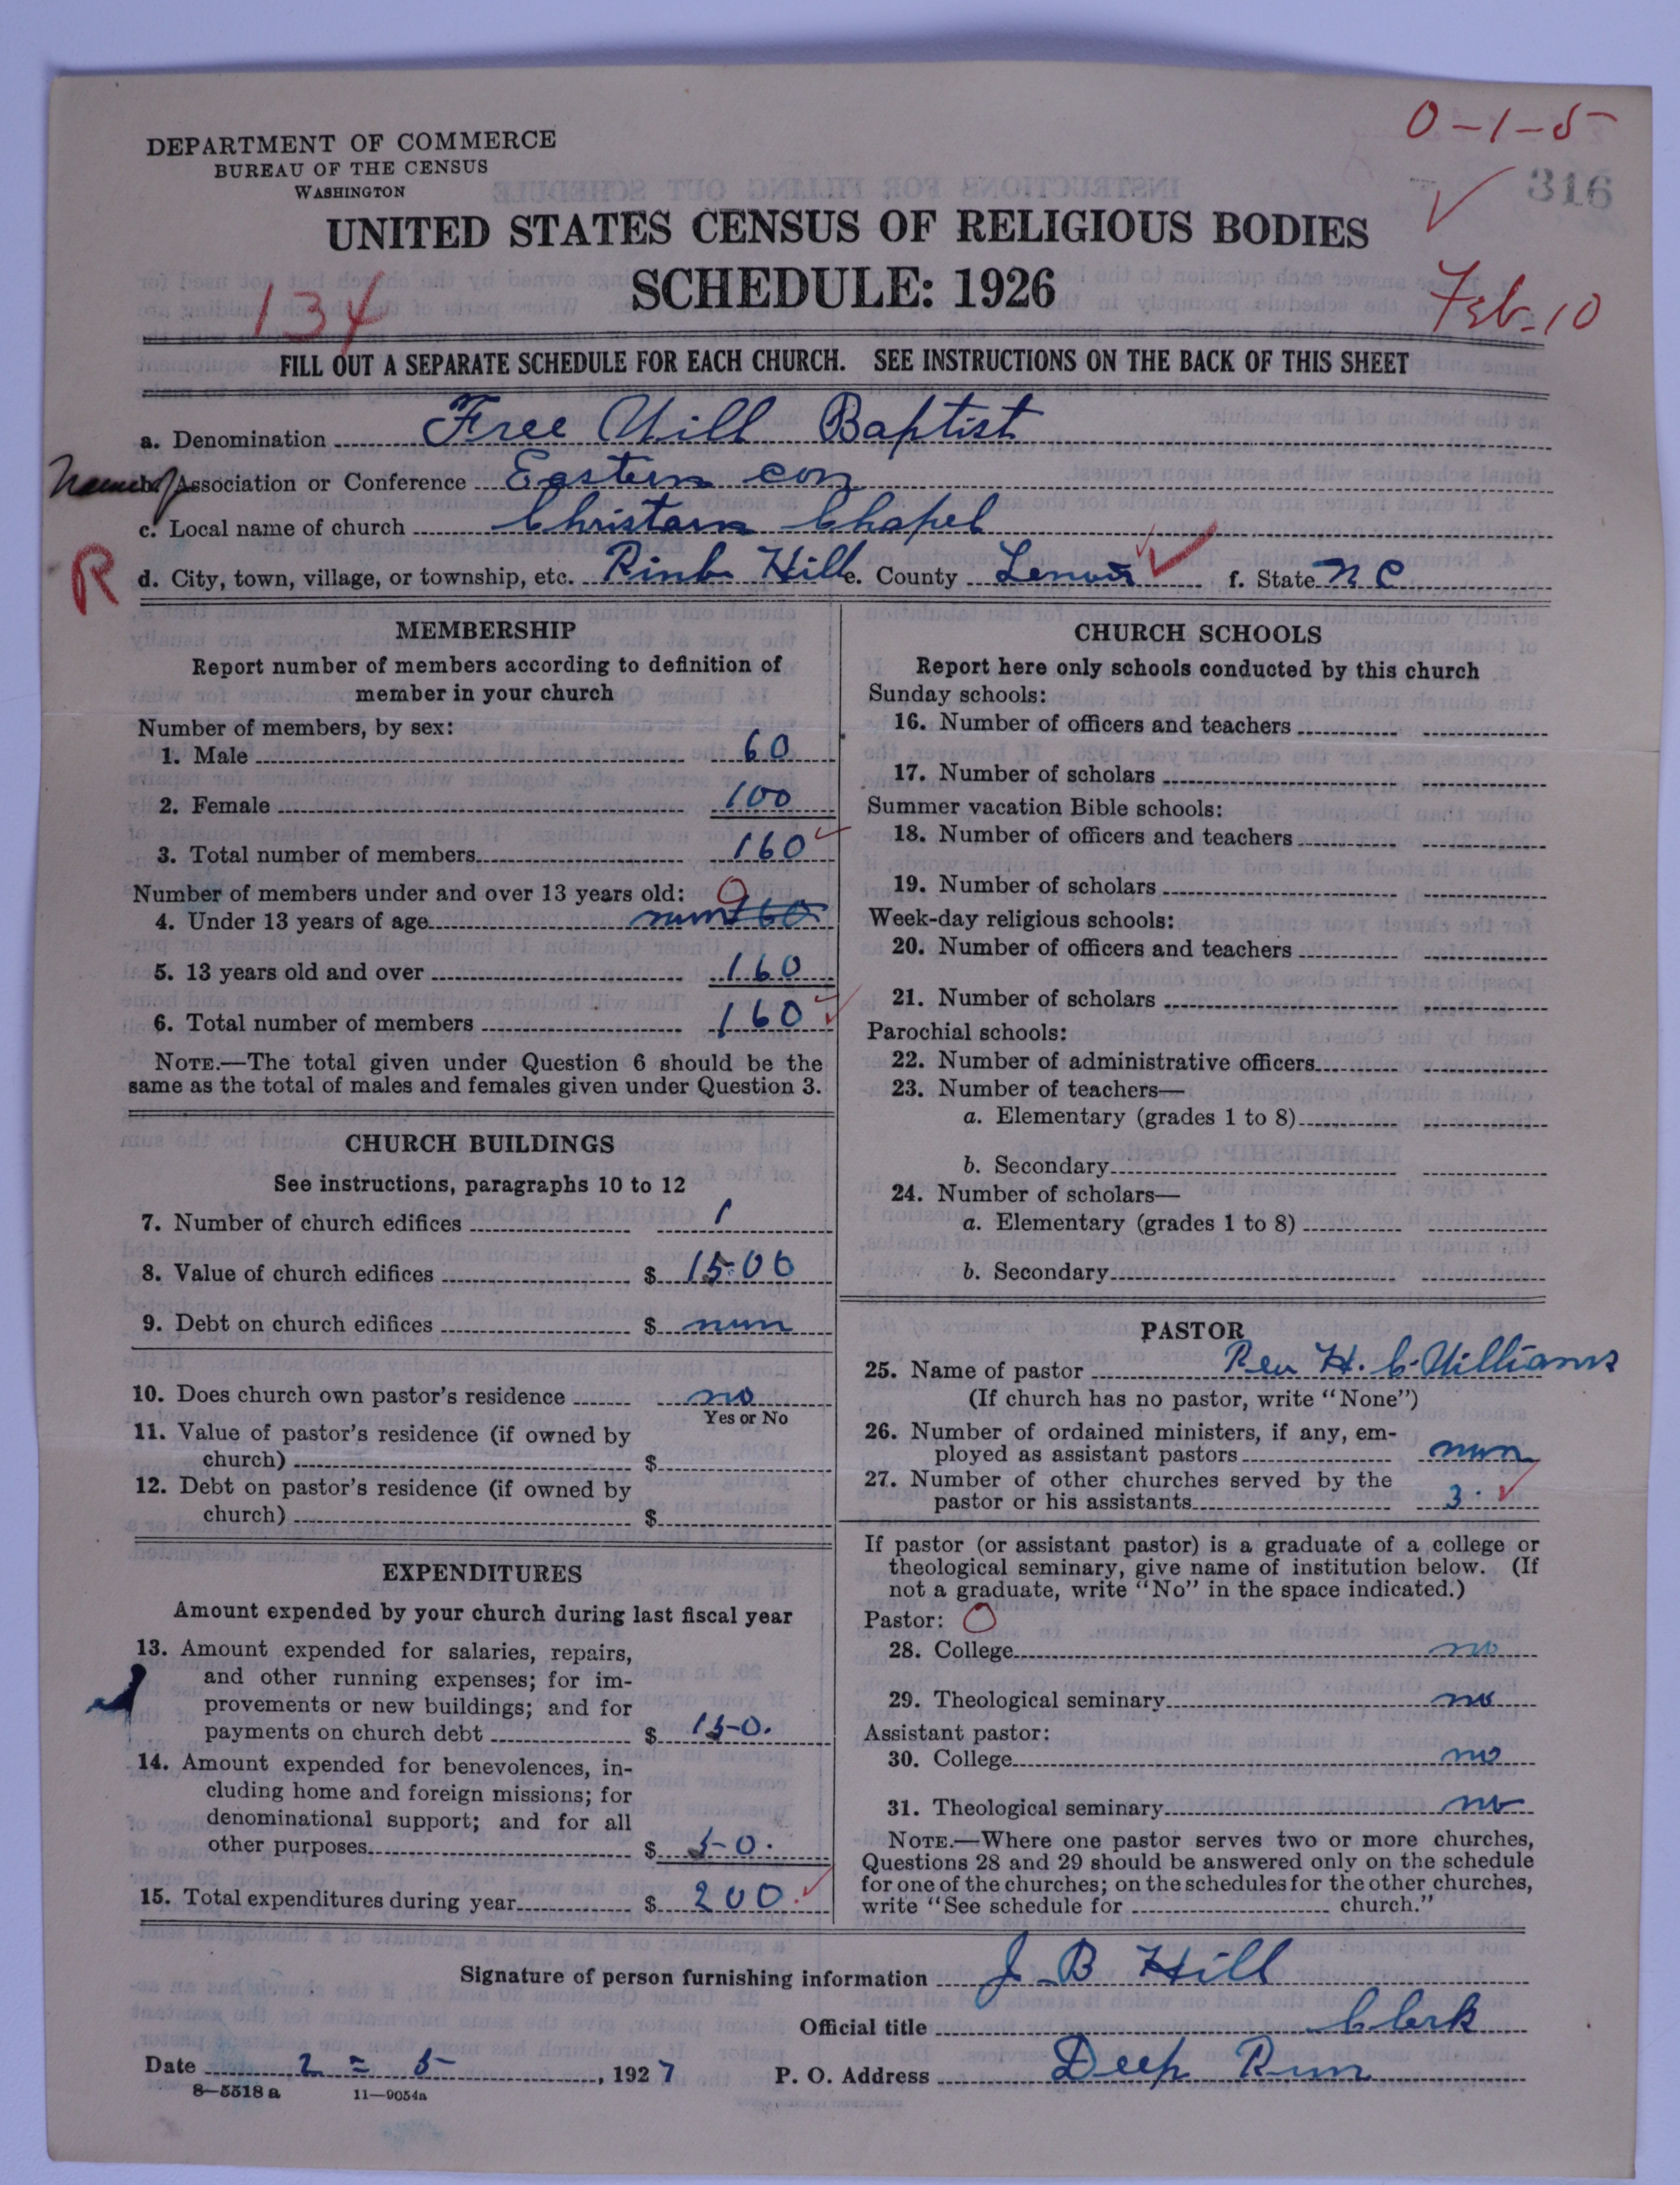 0-1-5
DEPARTMENT OF COMMERCE
BUREAU OF THE CENSUS
WASHINGTON
316
UNITED STATES CENSUS OF RELIGIOUS BODIES
SCHEDULE: 1926
134
Feb-10
FILL OUT A SEPARATE SCHEDULE FOR EACH CHURCH. SEE INSTRUCTIONS ON THE BACK OF THIS SHEET
a. Denomination Free Will Baptist
Name of Association or Conference Eastern con
c. Local name of church Christarn Chapel
R
d. City, town, village, or township, etc. Pink Hill e. County Lenoir f. State N C
MEMBERSHIP
Report number of members according to definition of
member in your church
Number of members, by sex:
1. Male 60
2. Female 100
3. Total number of members 160
Number of members under and over 13 years old: 0
4. Under 13 years of age nun 160
5. 13 years old and over 160
6. Total number of members 160
NOTE.—The total given under Question 6 should be the
same as the total of males and females given under Question 3.
CHURCH BUILDINGS
See instructions, paragraphs 10 to 12
7. Number of church edifices 1
8. Value of church edifices $ 1500
9. Debt on church edifices $ nun
10. Does church own pastor's residence no
Yes or No
11. Value of pastor's residence (if owned by
church) $
12. Debt on pastor's residence (if owned by
church) $
EXPENDITURES
Amount expended by your church during last fiscal year
13. Amount expended for salaries, repairs,
and other running expenses; for im-
provements or new buildings; and for
payments on church debt $ 150.
14. Amount expended for benevolences, in-
cluding home and foreign missions; for
denominational support; and for all
other purposes $ 50.
15. Total expenditures during year $ 200.
CHURCH SCHOOLS
Report here only schools conducted by this church
Sunday schools:
16. Number of officers and teachers
17. Number of scholars
Summer vacation Bible schools:
18. Number of officers and teachers
19. Number of scholars
Week-day religious schools:
20. Number of officers and teachers
21. Number of scholars
Parochial schools:
22. Number of administrative officers
23. Number of teachers—
a. Elementary (grades 1 to 8)
b. Secondary
24. Number of scholars—
a. Elementary (grades 1 to 8)
b. Secondary
PASTOR
25. Name of pastor Rev H. C. Williams
(If church has no pastor, write "None")
26. Number of ordained ministers, if any, em-
ployed as assistant pastors nun
27. Number of other churches served by the
pastor or his assistants 3.
If pastor (or assistant pastor) is a graduate of a college or
theological seminary, give name of institution below. (If
not a graduate, write "No" in the space indicated.)
Pastor: 0
28. College no
29. Theological seminary no
Assistant pastor:
30. College no
31. Theological seminary no
NOTE.—Where one pastor serves two or more churches,
Questions 28 and 29 should be answered only on the schedule
for one of the churches; on the schedules for the other churches,
write "See schedule for church."
Signature of person furnishing information J B Hill
Official title Clerk
Date 2 = 5, 1927 P. O. Address Deep Run
8—5518 a 11—9054a